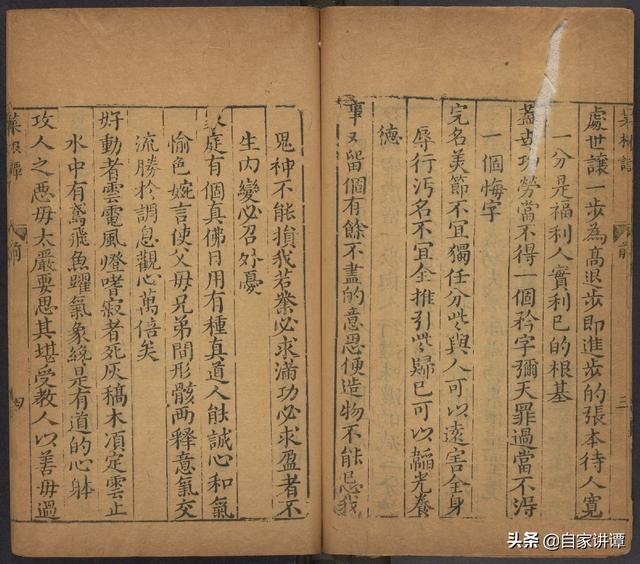 菜根譚
前
三
處世讓一步為高退步即進步的張本待人寬
一分是福利人實利己的根基
蓋世功勞當不得一個矜字彌天罪過當不淂
一個悔字
完名美節不宜獨任分些與人可以遠害全身
辱行污名不宜全推引些歸己可以韜光養
德
事又留個有餘不盡的意思便造物不能忌我
鬼神不能損我若業必求滿功必求盈者不
生內變必召外憂
家庭有個真佛日用有種真道人能誠心和氣
愉色婉言使父母兄弟間形骸兩釋意氣交
流勝於調息觀心萬倍矣
好動者雲電風燈嗜寂者死灰稿木湏定雲止
水中有鳶飛魚躍氣象纔是有道的心躰
攻人之惡毋太嚴要思其堪受教人以善毋過
菜根譚
前
四
头条 @自家讲谭